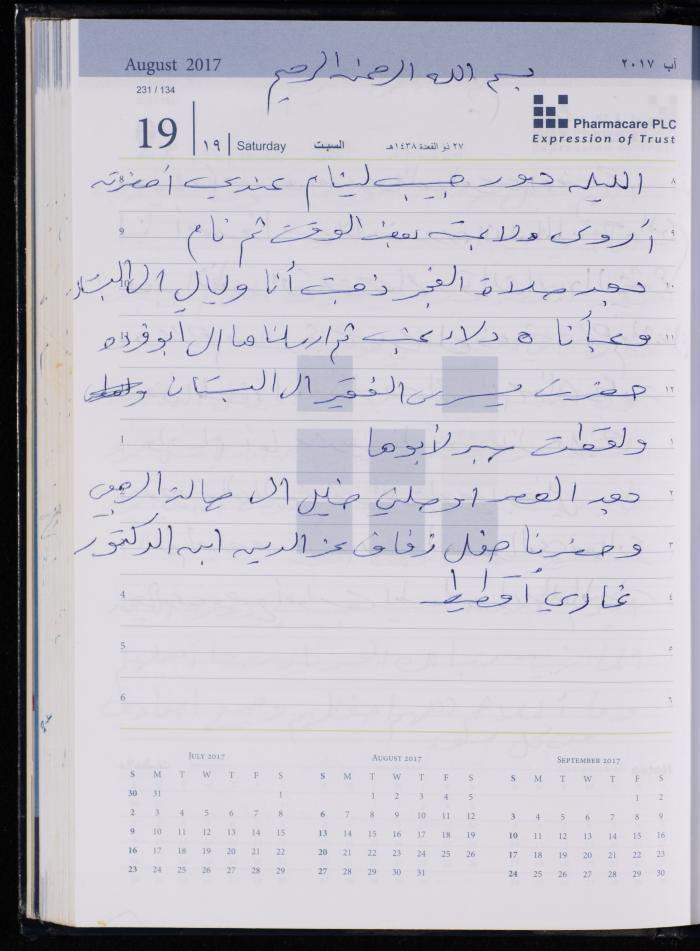 August 2017
آب ٢٠١٧
بسم الله الرحمن الرحيم
231 / 134
19 | ١٩ | Saturday السبت ٢٧ ذو القعدة ١٤٣٨هـ
Pharmacare PLC
Expression of Trust
8 الليله دور حبيب لينام عندي أحضرته ٨
9 أروى ولاعبته بعض الوقت ثم نام ٩
10 بعد صلاة الفجر ذهبت أنا وليال الى البستان ١٠
11 وعبأنا ٥ دلاء عنب ثم ارسلناها الى ابو فرده ١١
12 حضرت يسرى الفقير الى البستان ١٢
1 ولقطت صبر لأبوها ١
2 بعد العصر اوصلني خليل الى صالة ٢
3 وحضرنا حفل زفاف عز الدين ابن الدكتور ٣
4 غازي أقطيط ٤
5 ٥
6 ٦
JULY 2017
S M T W T F S
30 31 1
2 3 4 5 6 7 8
9 10 11 12 13 14 15
16 17 18 19 20 21 22
23 24 25 26 27 28 29
AUGUST 2017
S M T W T F S
1 2 3 4 5
6 7 8 9 10 11 12
13 14 15 16 17 18 19
20 21 22 23 24 25 26
27 28 29 30 31
SEPTEMBER 2017
S M T W T F S
1 2
3 4 5 6 7 8 9
10 11 12 13 14 15 16
17 18 19 20 21 22 23
24 25 26 27 28 29 30